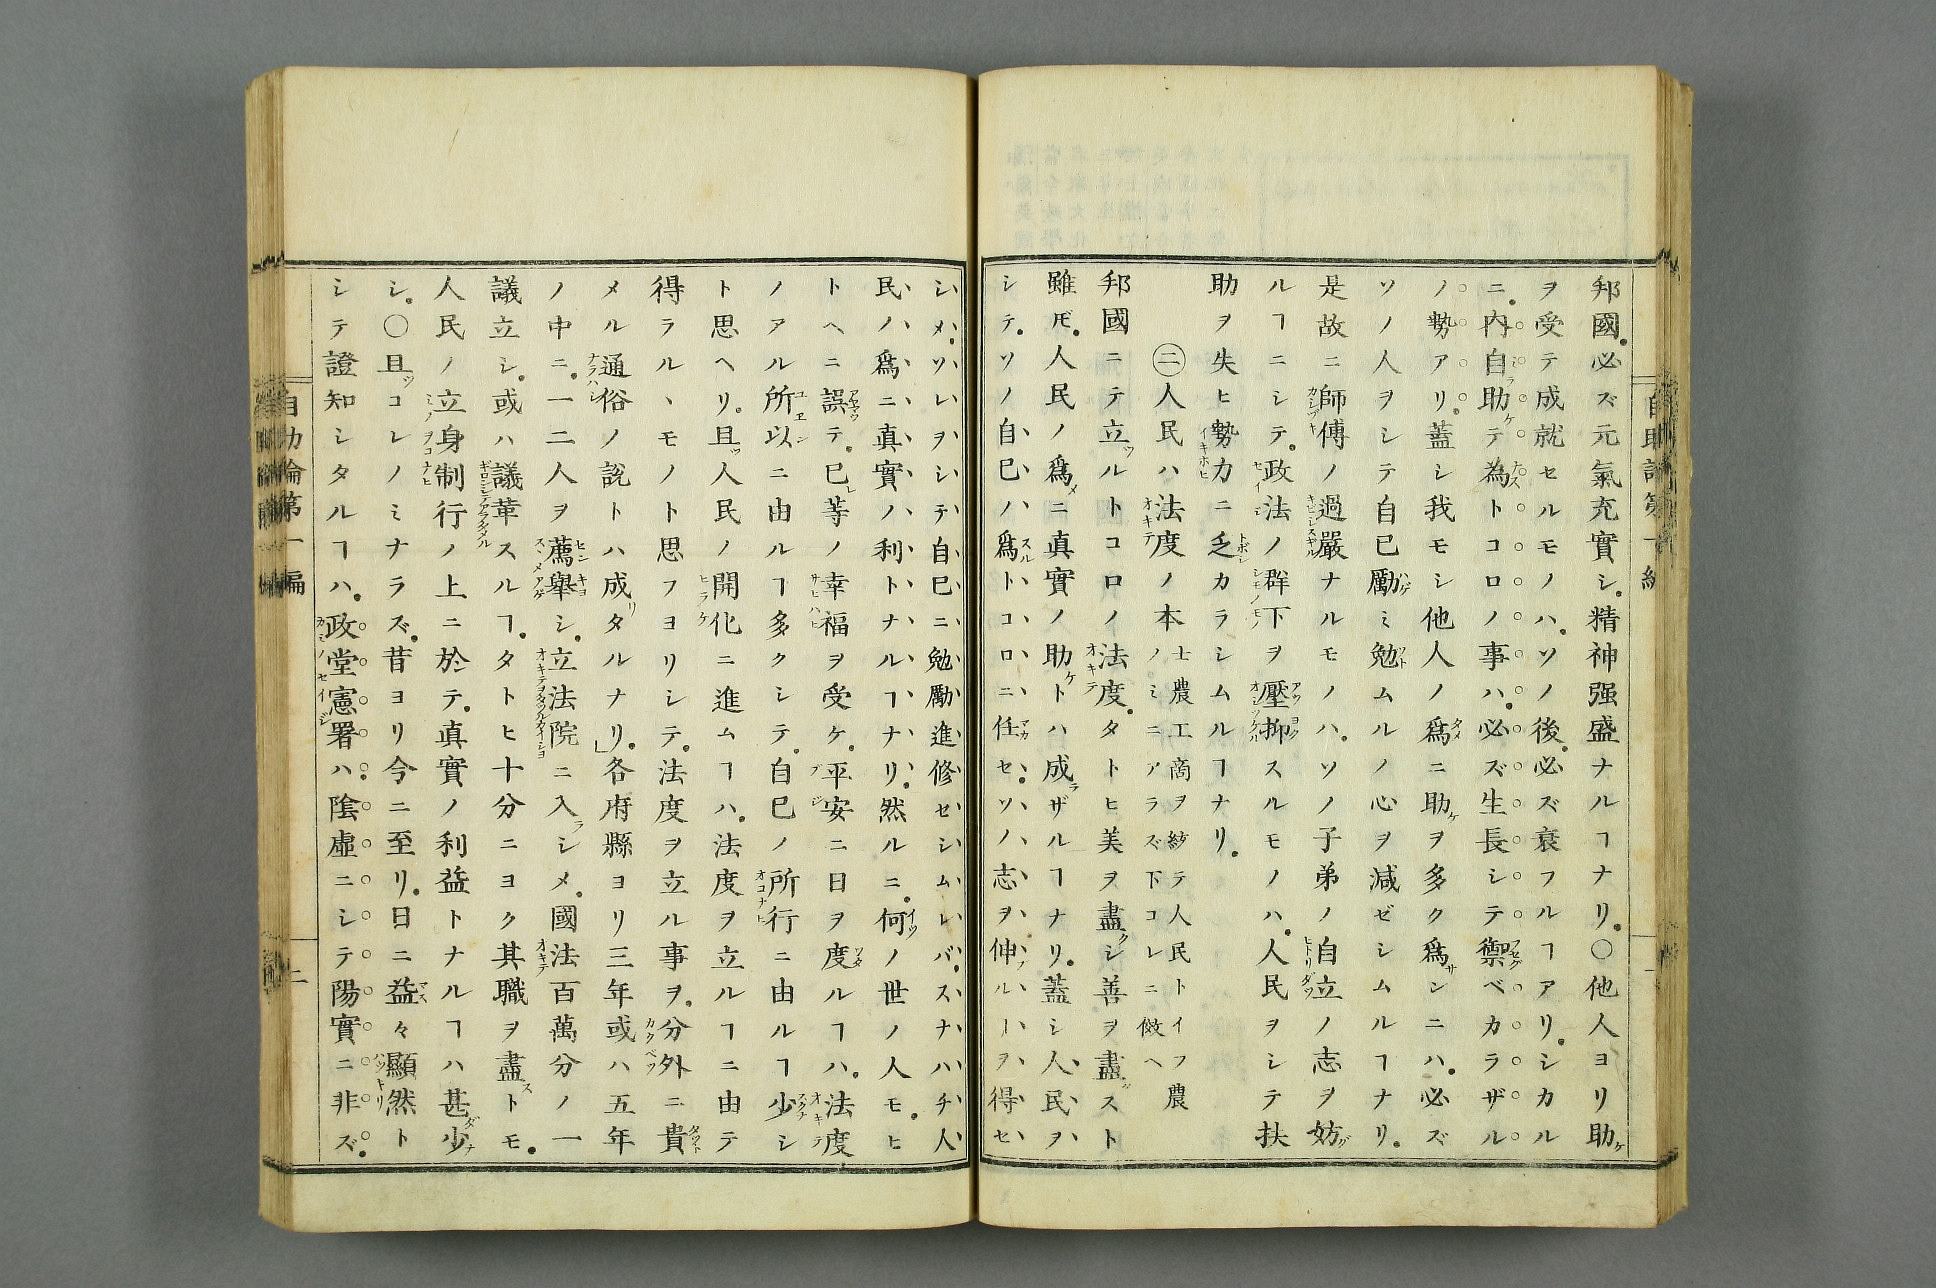 邦國必ズ元氣充實シ。精神强盛ナルヿナリ。〇他人ヨリ助
ヲ受テ成就セルモノハ。ソノ後必ズ衰フルヿアリ。シカル
ニ。内自助テ為トコロノ事ハ。必ズ生長シテ禦ベカラザル
ノ勢アリ。蓋シ我モシ他人ノ爲ニ助ヲ多ク爲ンニハ。必ズ
ソノ人ヲシテ自己勵ミ勉ムルノ心ヲ減ゼシムルヿナリ。
是故ニ師傅ノ過嚴ナルモノハ。ソノ子弟ノ自立ノ志ヲ妨
ルヿニシテ。政法ノ群下ヲ壓抑スルモノハ。人民ヲシテ扶
助ヲ失ヒ勢力ニ乏カラシムルヿナリ。
㊁人民ハ法度ノ本士農工商ヲ紡テ人民トイフ農ノミニアラズ下コレニ傚ヘ
邦國ニテ立ルトコロノ法度。タトヒ美ヲ盡シ善ヲ盡スト
雖𪜈。人民ノ爲ニ真實ノ助トハ成ザルヿナリ。蓋シ人民ヲ
シテ。ソノ自己ノ爲トコロニ任セ。ソノ志ヲ伸ルヿヲ得セ
シメ。ソレヲシテ自己ニ勉勵進修セシムレバ。スナハチ人
民ノ爲ニ真實ノ利トナルヿナリ。然ルニ。何ノ世ノ人モ。ヒ
トヘニ誤テ。已等ノ幸福ヲ受ケ。平安ニ日ヲ度ルヿハ。法度
ノアル所以ニ由ルヿ多クシテ。自已ノ所行ニ由ルヿ少シ
ト思ヘリ。且人民ノ開化ニ進ムヿハ。法度ヲ立ルヿニ由テ
得ラルヽモノト思フヨリシテ。法度ヲ立ル事ヲ。分外ニ貴
メル通俗ノ説トハ成タルナリ。」各府縣ヨリ三年或ハ五年
ノ中ニ。一二人ヲ薦舉シ。立法院ニ入シメ。國法百萬分ノ一
議立シ。或ハ議革スルヿ。タトヒ十分ニヨク其職ヲ盡トモ。
人民ノ立身制行ノ上ニ於テ。真實ノ利益トナルヿハ甚少
シ。〇且コレノミナラズ。昔ヨリ今ニ至リ。日ニ益々顯然ト
シテ證知シタルヿハ。政堂憲署ハ陰虛ニシテ陽實ニ非ズ。
自助論第一編
二